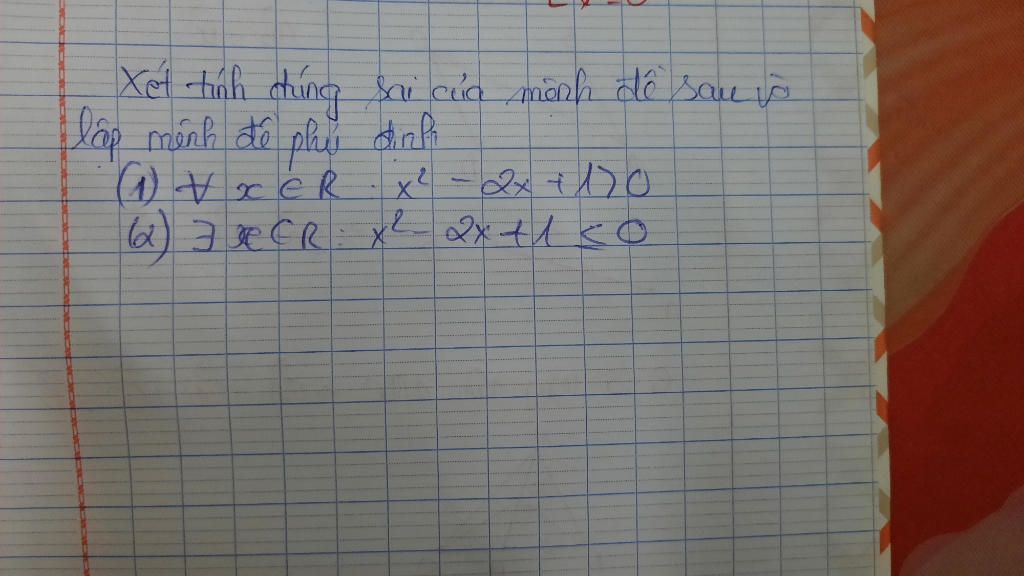 Xét tính đúng sai của mệnh đề sau và
lập mệnh đề phủ định
(1) ∀ x ∈ R : x² - 2x + 1 > 0
(2) ∃ x ∈ R : x² - 2x + 1 ≤ 0